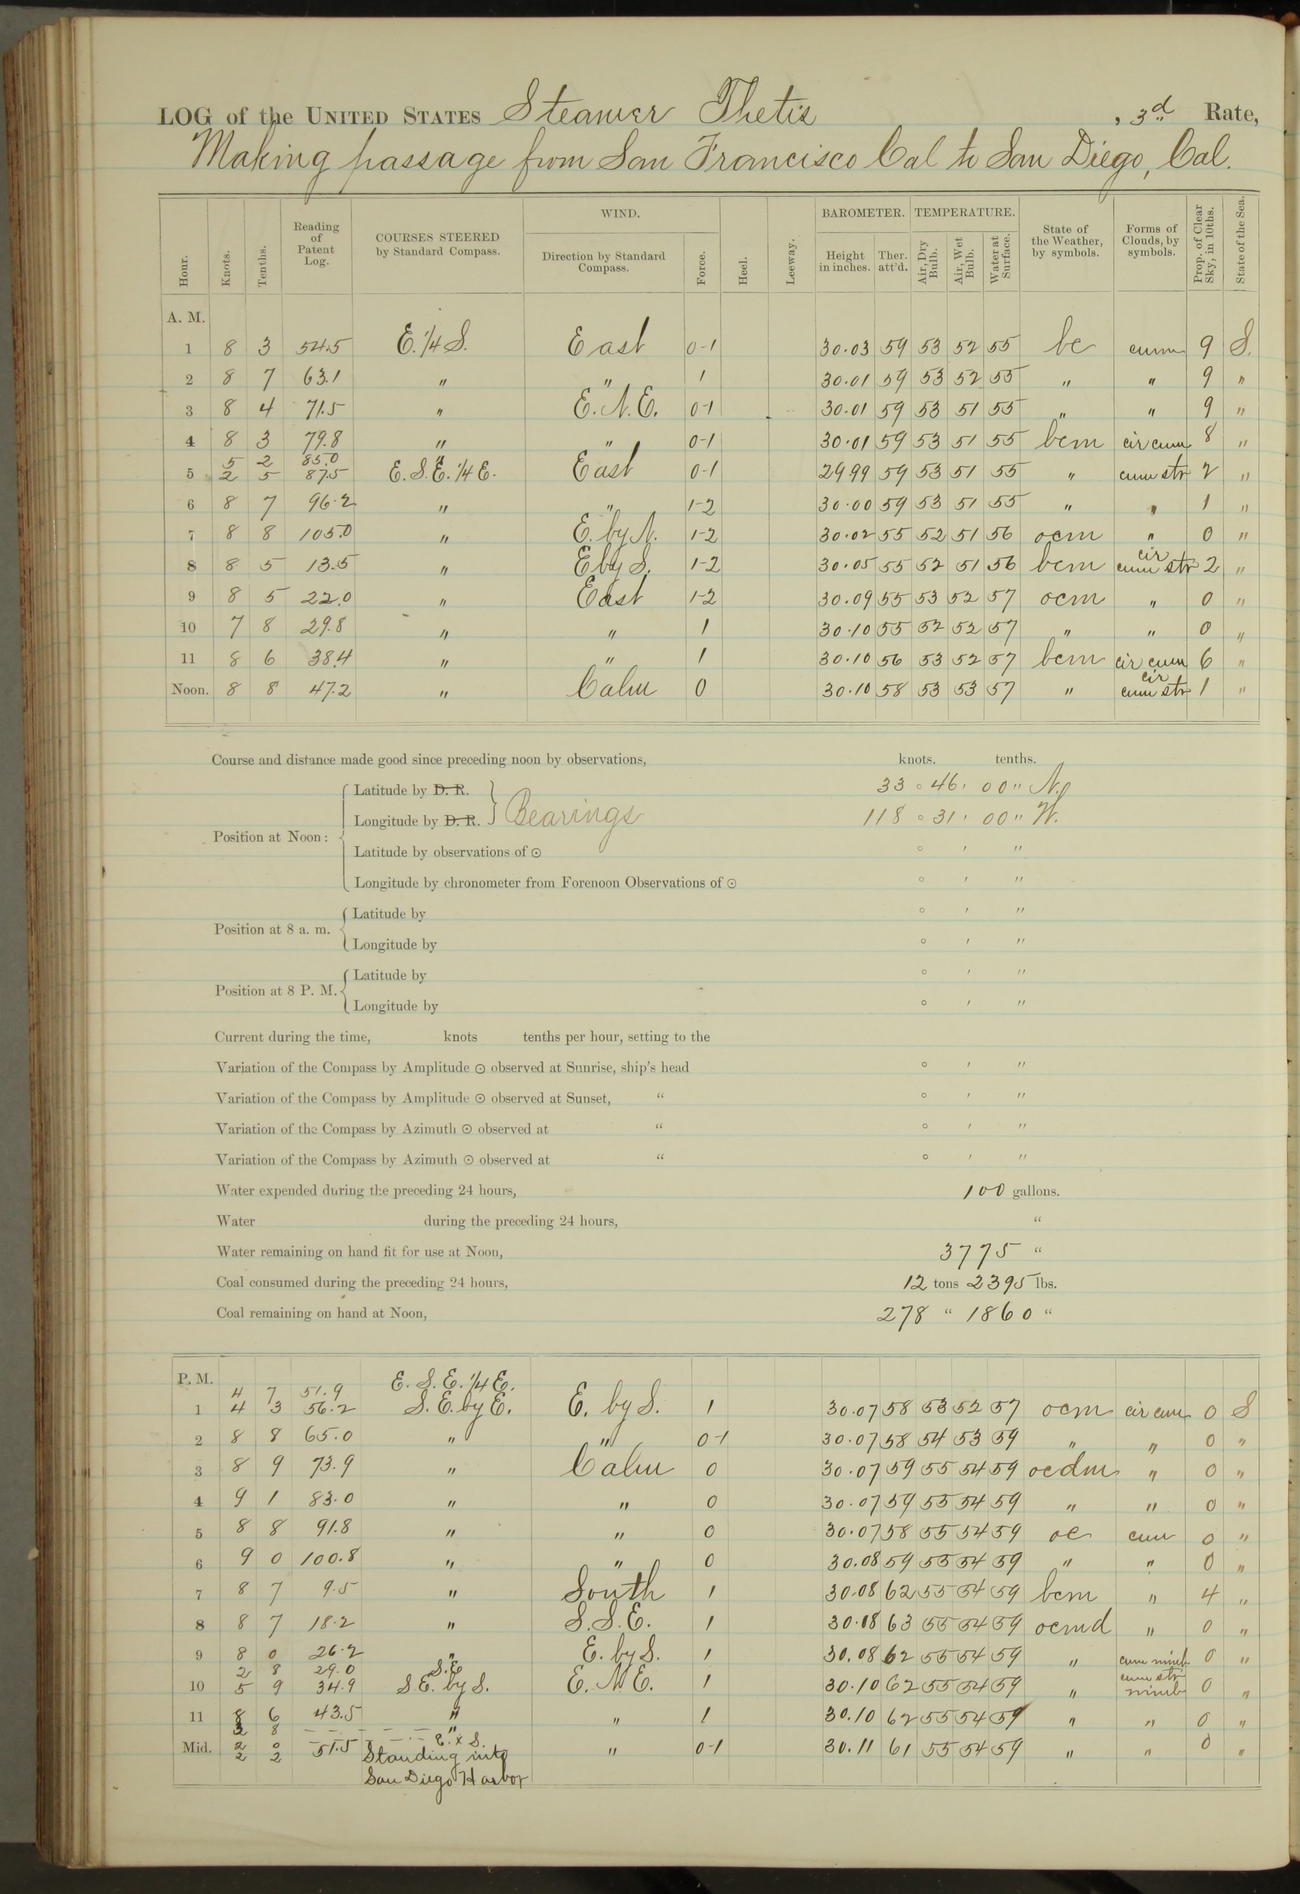 LOG of the UNITED STATES Steamer Thetis , 3d Rate,
Making passage from San Francisco Cal to San Diego, Cal.
Hour. Knots. Tenths. Reading of Patent Log. COURSES STEERED by Standard Compass. WIND. Direction by Standard Compass. Force. Heel. Leeway. BAROMETER. Height in inches. Ther. att'd. TEMPERATURE. Air, Dry Bulb. Air, Wet Bulb. Water at Surface. State of the Weather, by symbols. Forms of Clouds, by symbols. Prop. of Clear Sky, in 10ths. State of the Sea.
A. M.
1 8 3 54.5 E. 1/4 S. East 0-1 30.03 59 53 52 55 bc cum 9 S.
2 8 7 63.1 " " 1 30.01 59 53 52 55 " " 9 "
3 8 4 71.5 " E.N.E. 0-1 30.01 59 53 51 55 " " 9 "
4 8 3 79.8 " " 0-1 30.01 59 53 51 55 bcm cir cum 8 "
5 2 85.0 "
5 2 5 87.5 E.S.E. 1/4 E. East 0-1 29 99 59 53 51 55 " cum str 2 "
6 8 7 96.2 " " 1-2 30.00 59 53 51 55 " " 1 "
7 8 8 105.0 " E. by N. 1-2 30.02 55 52 51 56 ocm " 0 "
8 8 5 13.5 " E by S. 1-2 30.05 55 52 51 56 bcm cir cum str 2 "
9 8 5 22.0 " East 1-2 30.09 55 53 52 57 ocm " 0 "
10 7 8 29.8 " " 1 30.10 55 52 52 57 " " 0 "
11 8 6 38.4 " " 1 30.10 56 53 52 57 bcm cir cum 6 "
Noon. 8 8 47.2 " Calm 0 30.10 58 53 53 57 " cir cum str 1 "
Course and distance made good since preceding noon by observations, knots. tenths.
Position at Noon:
Latitude by D. R. 33 ° 46 ' 00 " N.
Longitude by D. R. Bearings 118 ° 31 ' 00 " W.
Latitude by observations of ⊙ ° ' "
Longitude by chronometer from Forenoon Observations of ⊙ ° ' "
Position at 8 a. m.
Latitude by ° ' "
Longitude by ° ' "
Position at 8 P. M.
Latitude by ° ' "
Longitude by ° ' "
Current during the time, knots tenths per hour, setting to the
Variation of the Compass by Amplitude ⊙ observed at Sunrise, ship's head ° ' "
Variation of the Compass by Amplitude ⊙ observed at Sunset, " ° ' "
Variation of the Compass by Azimuth ⊙ observed at " ° ' "
Variation of the Compass by Azimuth ⊙ observed at " ° ' "
Water expended during the preceding 24 hours, 100 gallons.
Water during the preceding 24 hours, "
Water remaining on hand fit for use at Noon, 3775 "
Coal consumed during the preceding 24 hours, 12 tons 2395 lbs.
Coal remaining on hand at Noon, 278 " 1860 "
P. M.
4 7 51.9 E. S. E. 1/4 E.
1 4 3 56.2 S. E. by E. E. by S. 1 30.07 58 53 52 57 ocm cir cum 0 S
2 8 8 65.0 " " 0-1 30.07 58 54 53 59 " " 0 "
3 8 9 73.9 " Calm 0 30.07 59 55 54 59 ocdm " 0 "
4 9 1 83.0 " " 0 30.07 59 55 54 59 " " 0 "
5 8 8 91.8 " " 0 30.07 58 55 54 59 oc cum 0 "
6 9 0 100.8 " " 0 30.08 59 55 54 59 " " 0 "
7 8 7 9.5 " South 1 30.08 62 55 54 59 bcm " 4 "
8 8 7 18.2 " S.S.E. 1 30.08 63 55 54 59 ocmd " 0 "
9 8 0 26.2 " E. by S. 1 30.08 62 55 54 59 " cum nimb 0 "
2 8 29.0 S.E
10 5 9 34.9 S E. by S. E. N E. 1 30.10 62 55 54 59 " cum str nimb 0 "
11 8 6 43.5 " " 1 30.10 62 55 54 59 " " 0 "
3 8 "
2 0 E. x S.
Mid. 2 2 51.5 Standing into " 0-1 30.11 61 55 54 59 " " 0 "
San Diego Harbor